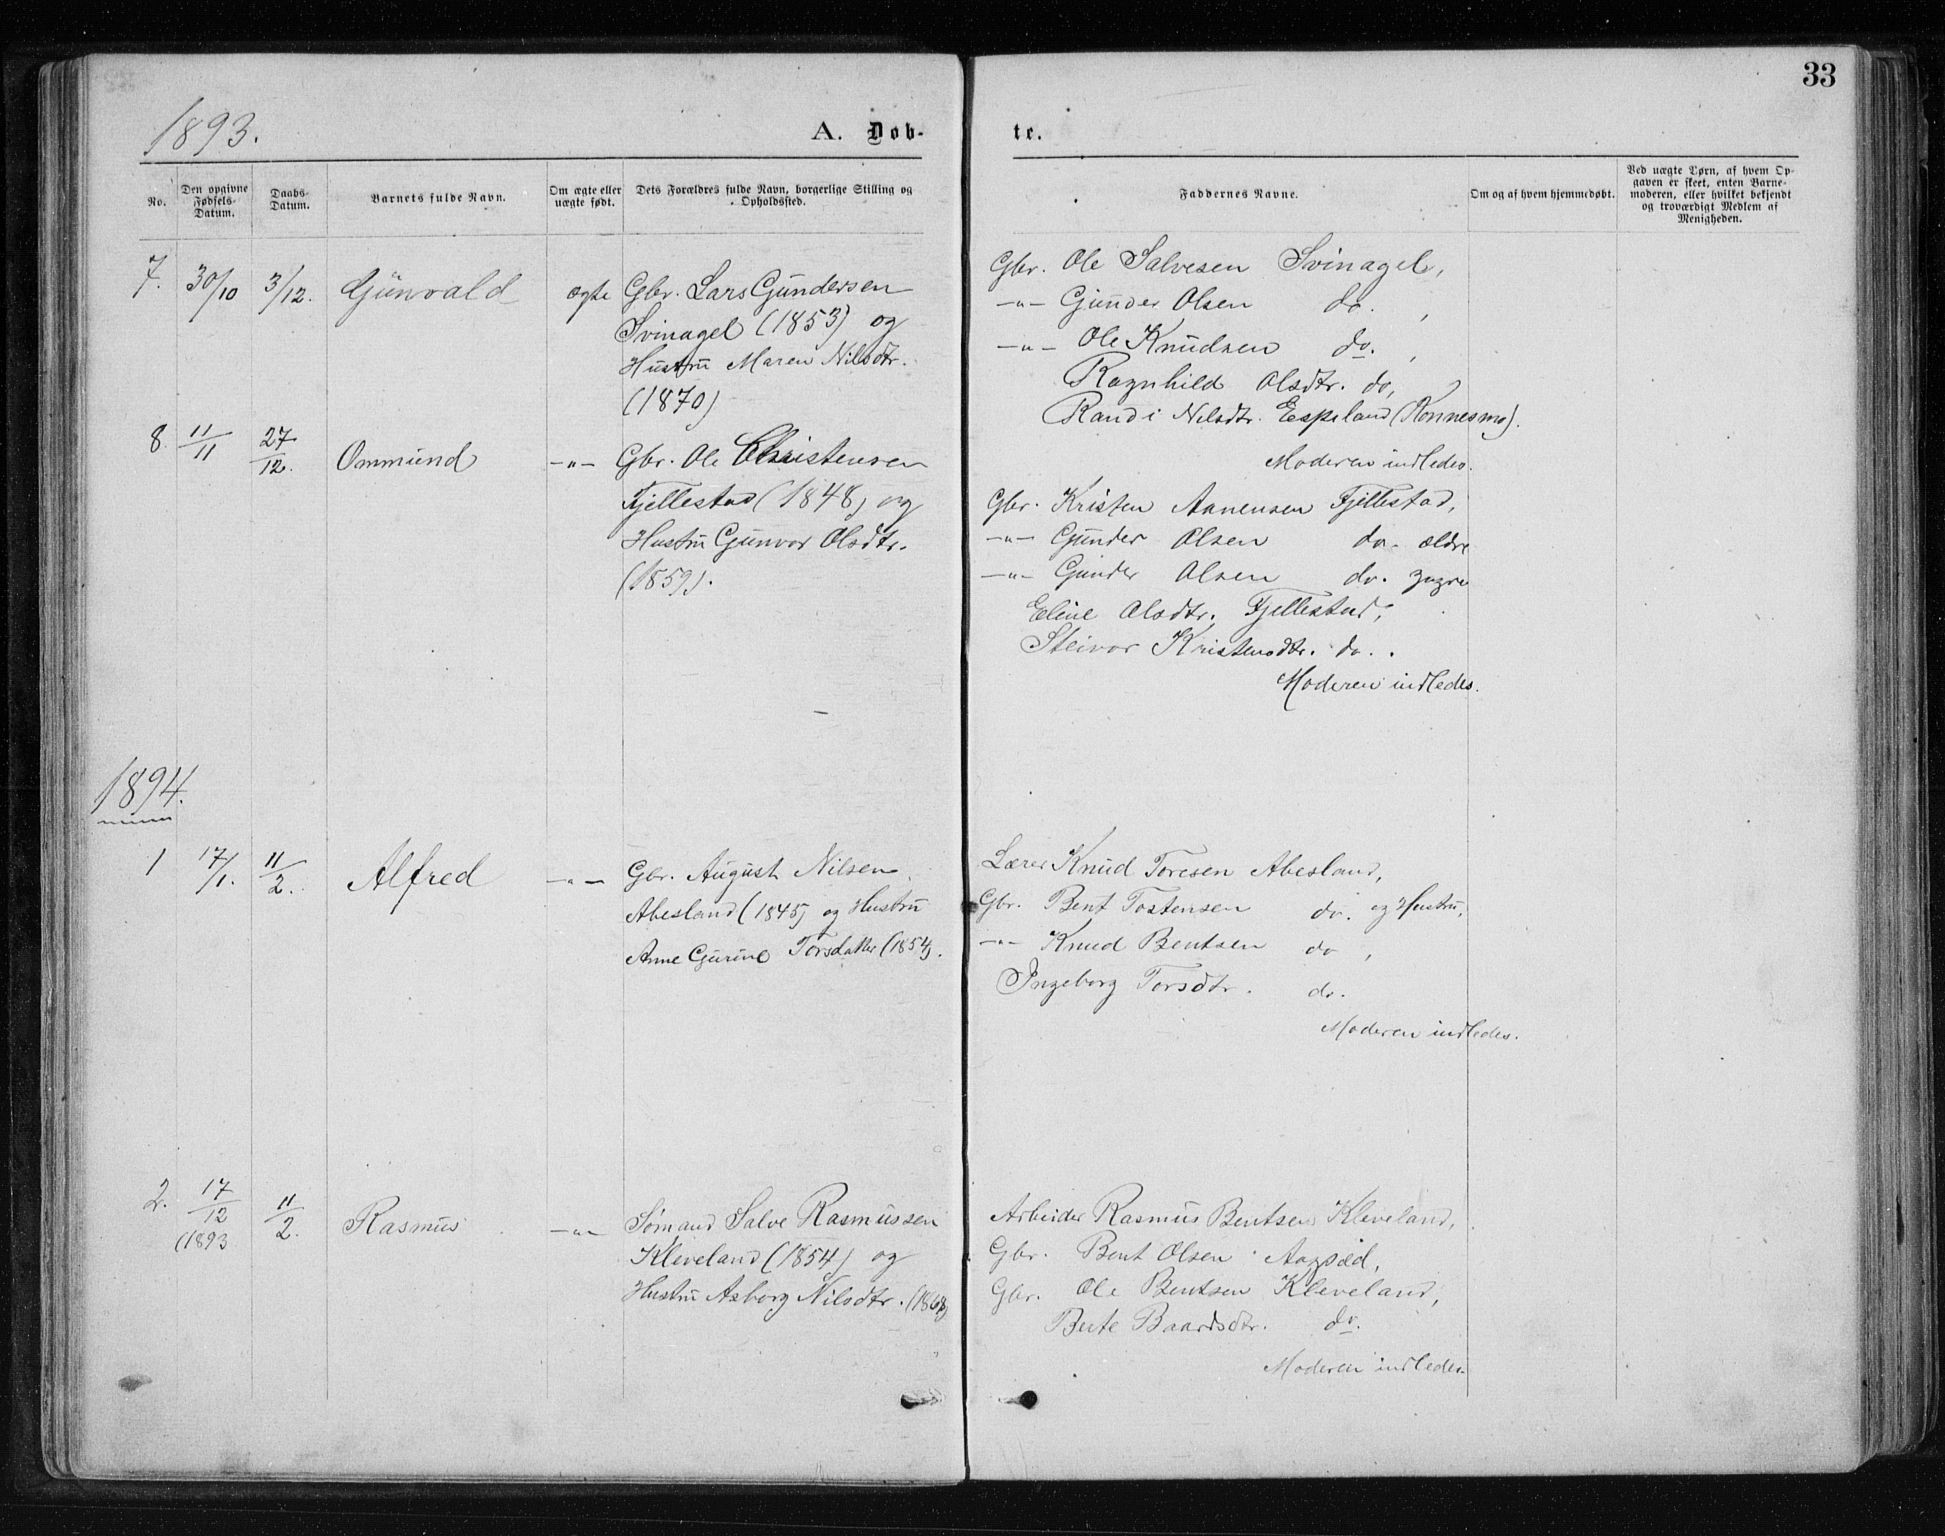 33
1893.
A. Døb-
te.
No.
Den opgivne Fødsels-Datum.
Daabs-Datum.
Barnets fulde Navn.
Om ægte eller uægte født.
Dets Forældres fulde Navn, borgerlige Stilling og Opholdssted.
Faddernes Navne.
Om og af hvem hjemmedøbt.
Ved uægte Børn, af hvem Op-
gaven er skeet, enten Barne-
moderen, eller hvilket bekjendt
og troværdigt Medlem af
Menigheden.
7. 30/10 3/12. Gunvald ægte Gbr. Lars Gundersen
Svinagel (1853) og
Hustru Maren Nilsdtr.
(1870)
Gbr. Ole Salvesen Svinagel,
-"- Gunder Olsen do. ,
-"- Ole Knudsen do. ,
Ragnhild Olsdtr. do,
Randi Nilsdtr. Eespeland (Konnesmo).
Moderen indledes.
8. 11/11 27/12. Ommund -"- Gbr. Ole Christensen
Fjellestad (1848) og
Hustru Gunvor Olsdtr.
(1859).
Gbr. Kristen Aanensen Fjellestad,
-"- Gunder Olsen do. ældre
-"- Gunder Olsen do. yngre
Eline Olsdtr. Fjellestad,
Steivor Kristensdtr. do.
Moderen indledes.
1894.
1 17/1. 11/2. Alfred -"- Gbr. August Nilsen
Abesland (1845) og Hustru
Anne Gurine Torsdatter (1854).
Lærer Knud Toresen Abesland,
Gbr. Bent Tostensen do. og Hustru,
-"- Knud Bentsen do ,
Ingeborg Torsdtr. do.
Moderen indledes.
2. 17/12 (1893 11/2. Rasmus -"- Sømand Salve Rasmussen
Kleveland (1854) og
Hustru Asborg Nilsdtr. (1868)
Arbeider Rasmus Bentsen Kleveland,
Gbr. Bent Olsen Aagsæd,
Gbr. Ole Bentsen Kleveland,
Berte Baardsdtr. do.
Moderen indledes.